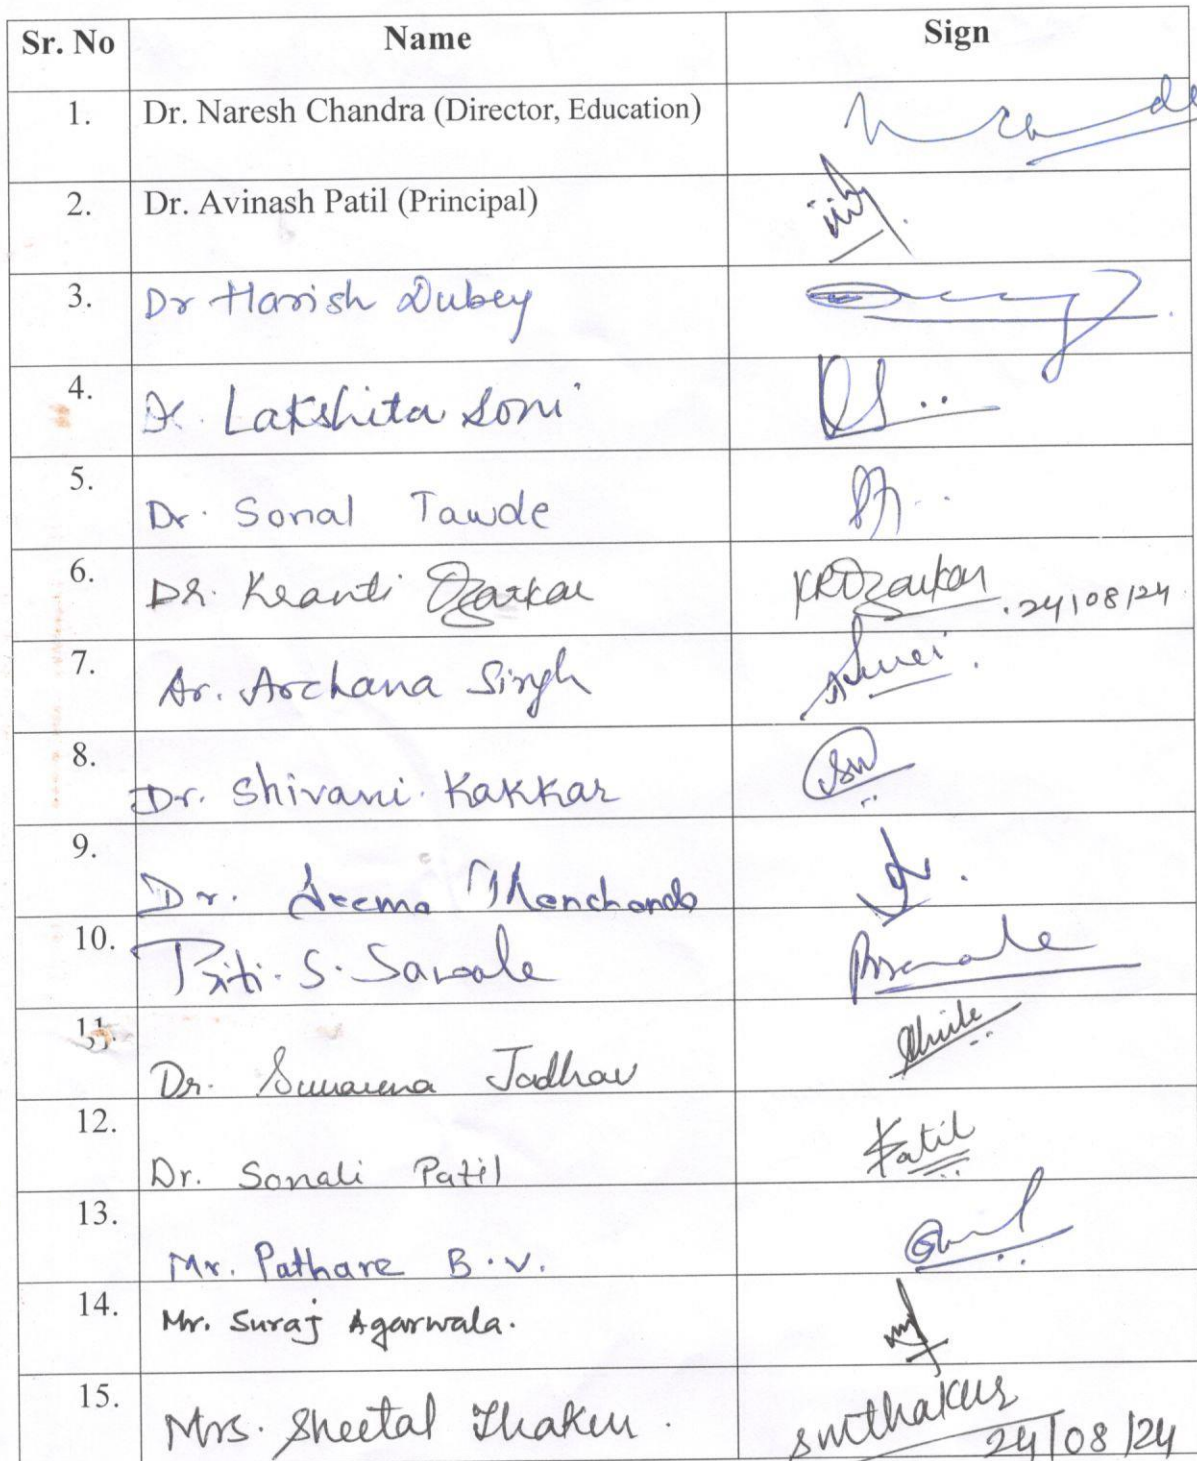 Sr. No Name Sign
1. Dr. Naresh Chandra (Director, Education)
2. Dr. Avinash Patil (Principal)
3. Dr Harish Dubey
4. Dr. Lakshita Soni
5. Dr. Sonal Tawde
6. Dr. Kranti Ozarkar KROzarkar .24/08/24
7. Ar. Archana Singh
8. Dr. Shivani Kakkar
9. Dr.
10. Priti. S. Sawale
11. Dr. Sunaena Jadhav
12. Dr. Sonali Patil Patil
13. Mr. Pathare B.V.
14. Mr. Suraj Agarwala.
15. Mrs. Sheetal Thakur. smthakur
24/08/24